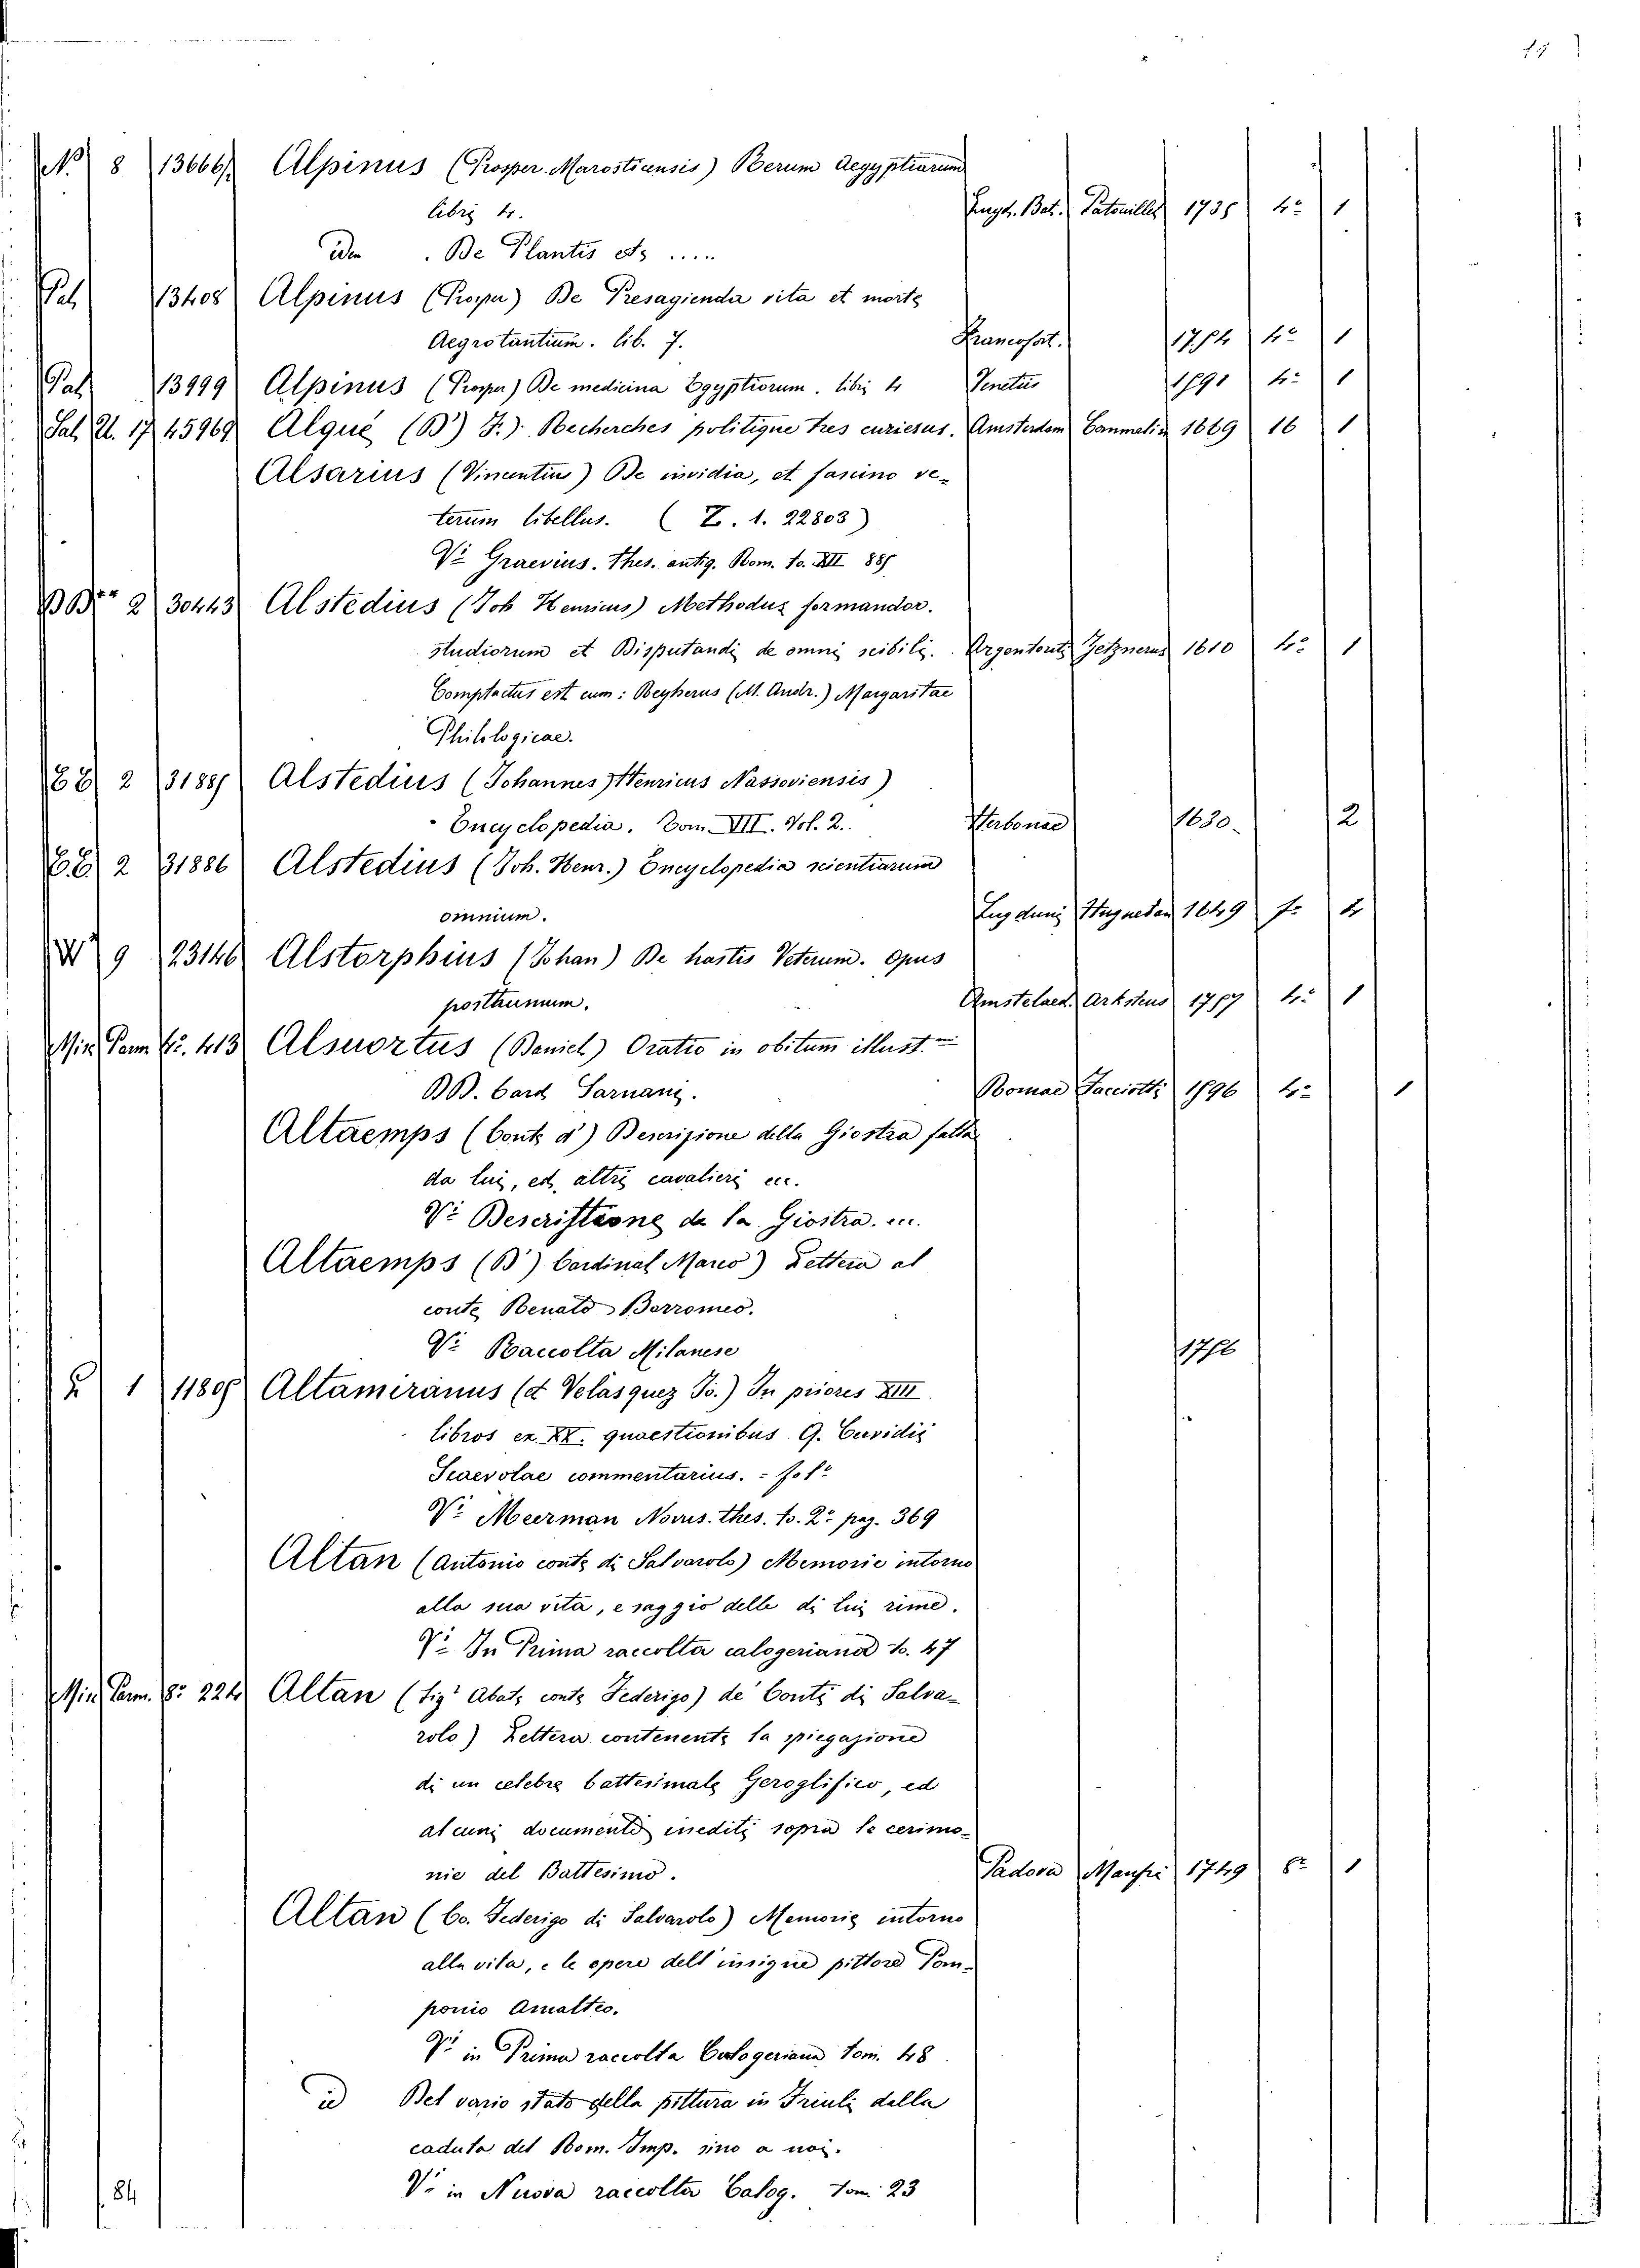 N. 8 13666 Alpinus (Prosper. Marosticensis) Rerum Aegyptiarum
libri 4. Lugd. Bat. Potouillet 1735 4º 1
iden . De Plantis etc .....
Pal 13408 Alpinus (Prosper) De Presagienda vita et morte
Aegrotantium. lib. 7. Francofort. 1754 4º 1
Pal 13999 Alpinus (Prosper) De medicina Egyptiorum. libri 4 Venetiis 1591 4º 1
Sal. 21. 17 45969 Alquié (D') F.) Recherches politique tres curieses. Amsterdam Commelin 1669 16 1
Alsarius (Vincentius) De invidia, et fascino ve-
terum libellus. (Z. 1. 22803)
Vi Graevius. Thes. antiq. Rom. to. XII 885
BB 2 30443 Alstedius (Joh Henricus) Methodus formandor.
studiorum et Disputandi de omni scibili. Argentorat. Zetznerus 1610 4º 1
Comptactus est cum: Reyherus (M. Andr.) Margaritae
Philologicae.
EE 2 31885 Alstedius (Johannes Henricus Nassoviensis)
Encyclopedia. Tom. VII. Vol. 2. Herbonae 1630 2
EE 2 31886 Alstedius (Joh. Henr.) Encyclopedia scientiarum
omnium. Lugduni Huguetan 1649 fº 4
W 9 23146 Alstorphius (Johan) De hastis Veterum. opus
posthumum. Amstelaed. Arksteus 1757 4º 1
Min. Parm. 4º. 413 Alsuortus (Daniel) Oratio in obitum illust.mi
DD. Card Sarnani. Romae Facciotti 1596 4º 1
Altaemps (Conte d') Descrizione della Giostra fatta
da lui, ed altri cavalieri ecc.
Vi Descrittione de la Giostra. ecc.
Altaemps (D') Cardinal Marco) Lettera al
conte Renato Borromeo.
Vi Raccolta Milanese 1756
1 11805 Altamiranus (et Velasquez Jo.) In priores XIII
libros ex XX. quaestionibus Q. Cervidii
Scaevolae commentarius. = folº
Vi Meerman Novus. thes. to. 2º pag. 369
Altan (Antonio conte di Salvarolo) Memorie intorno
alla sua vita, e saggio delle di lui rime.
Vi In Prima raccolta calogeriana to. 47
Min. Parm. 8º 224 Altan (Sigr Abate conte Federigo) de' Conti di Salva-
rolo) Lettera contenente la spiegazione
di un celebre battesimale Geroglifico, ed
alcuni documenti inediti sopra le cerimo-
nie del Battesimo. Padova Manfrè 1749 8º 1
Altan (Co. Federigo di Salvarolo) Memorie intorno
alla vita, e le opere dell'insigne pittore Pom-
ponio Amalteo.
Vi in Prima raccolta Calogeriana tom. 48
id Del vario stato della pittura in Friuli dalla
caduta del Rom. Imp. sino a noi.
Vi in Nuova raccolta Calog. tom. 23
84